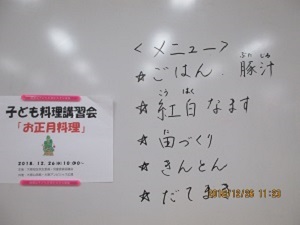 子ども料理講習会
「お正月料理」
2018.12.26(水)10:00~
<メニュー>
☆ごはん 豚汁
ぶた じる
☆紅白なます
こう はく
☆田づくり
た
☆きんとん
☆だてまき
2018/12/26 11:23